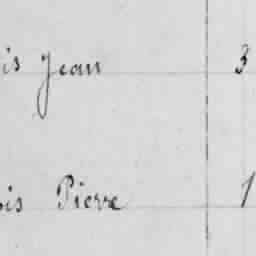 is Jean 3
is Pierre 1